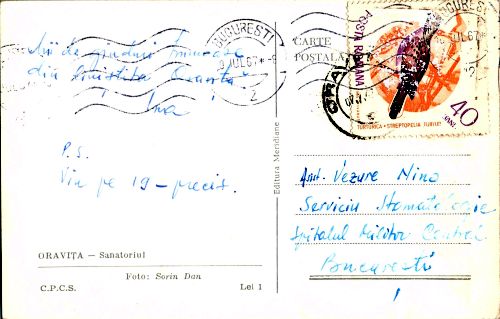 Mii de gânduri frumoase
din liniștita Oravița
Ina
P.S.
Vin pe 19 – precis.
ORAVIȚA – Sanatoriul
Foto: Sorin Dan
C.P.C.S. Lei 1
Editura Meridiane
CARTE
POSTALĂ
BUCUREȘTI
IUL. 67
BUCUREȘTI
IUL. 67
ORAV
POSTA ROMANA
TURTURICA - STREPTOPELIA TURTUR
40
BANI
Asist. Vezure Nina
Serviciu Stomatologie
Spitalul Militar Central
București